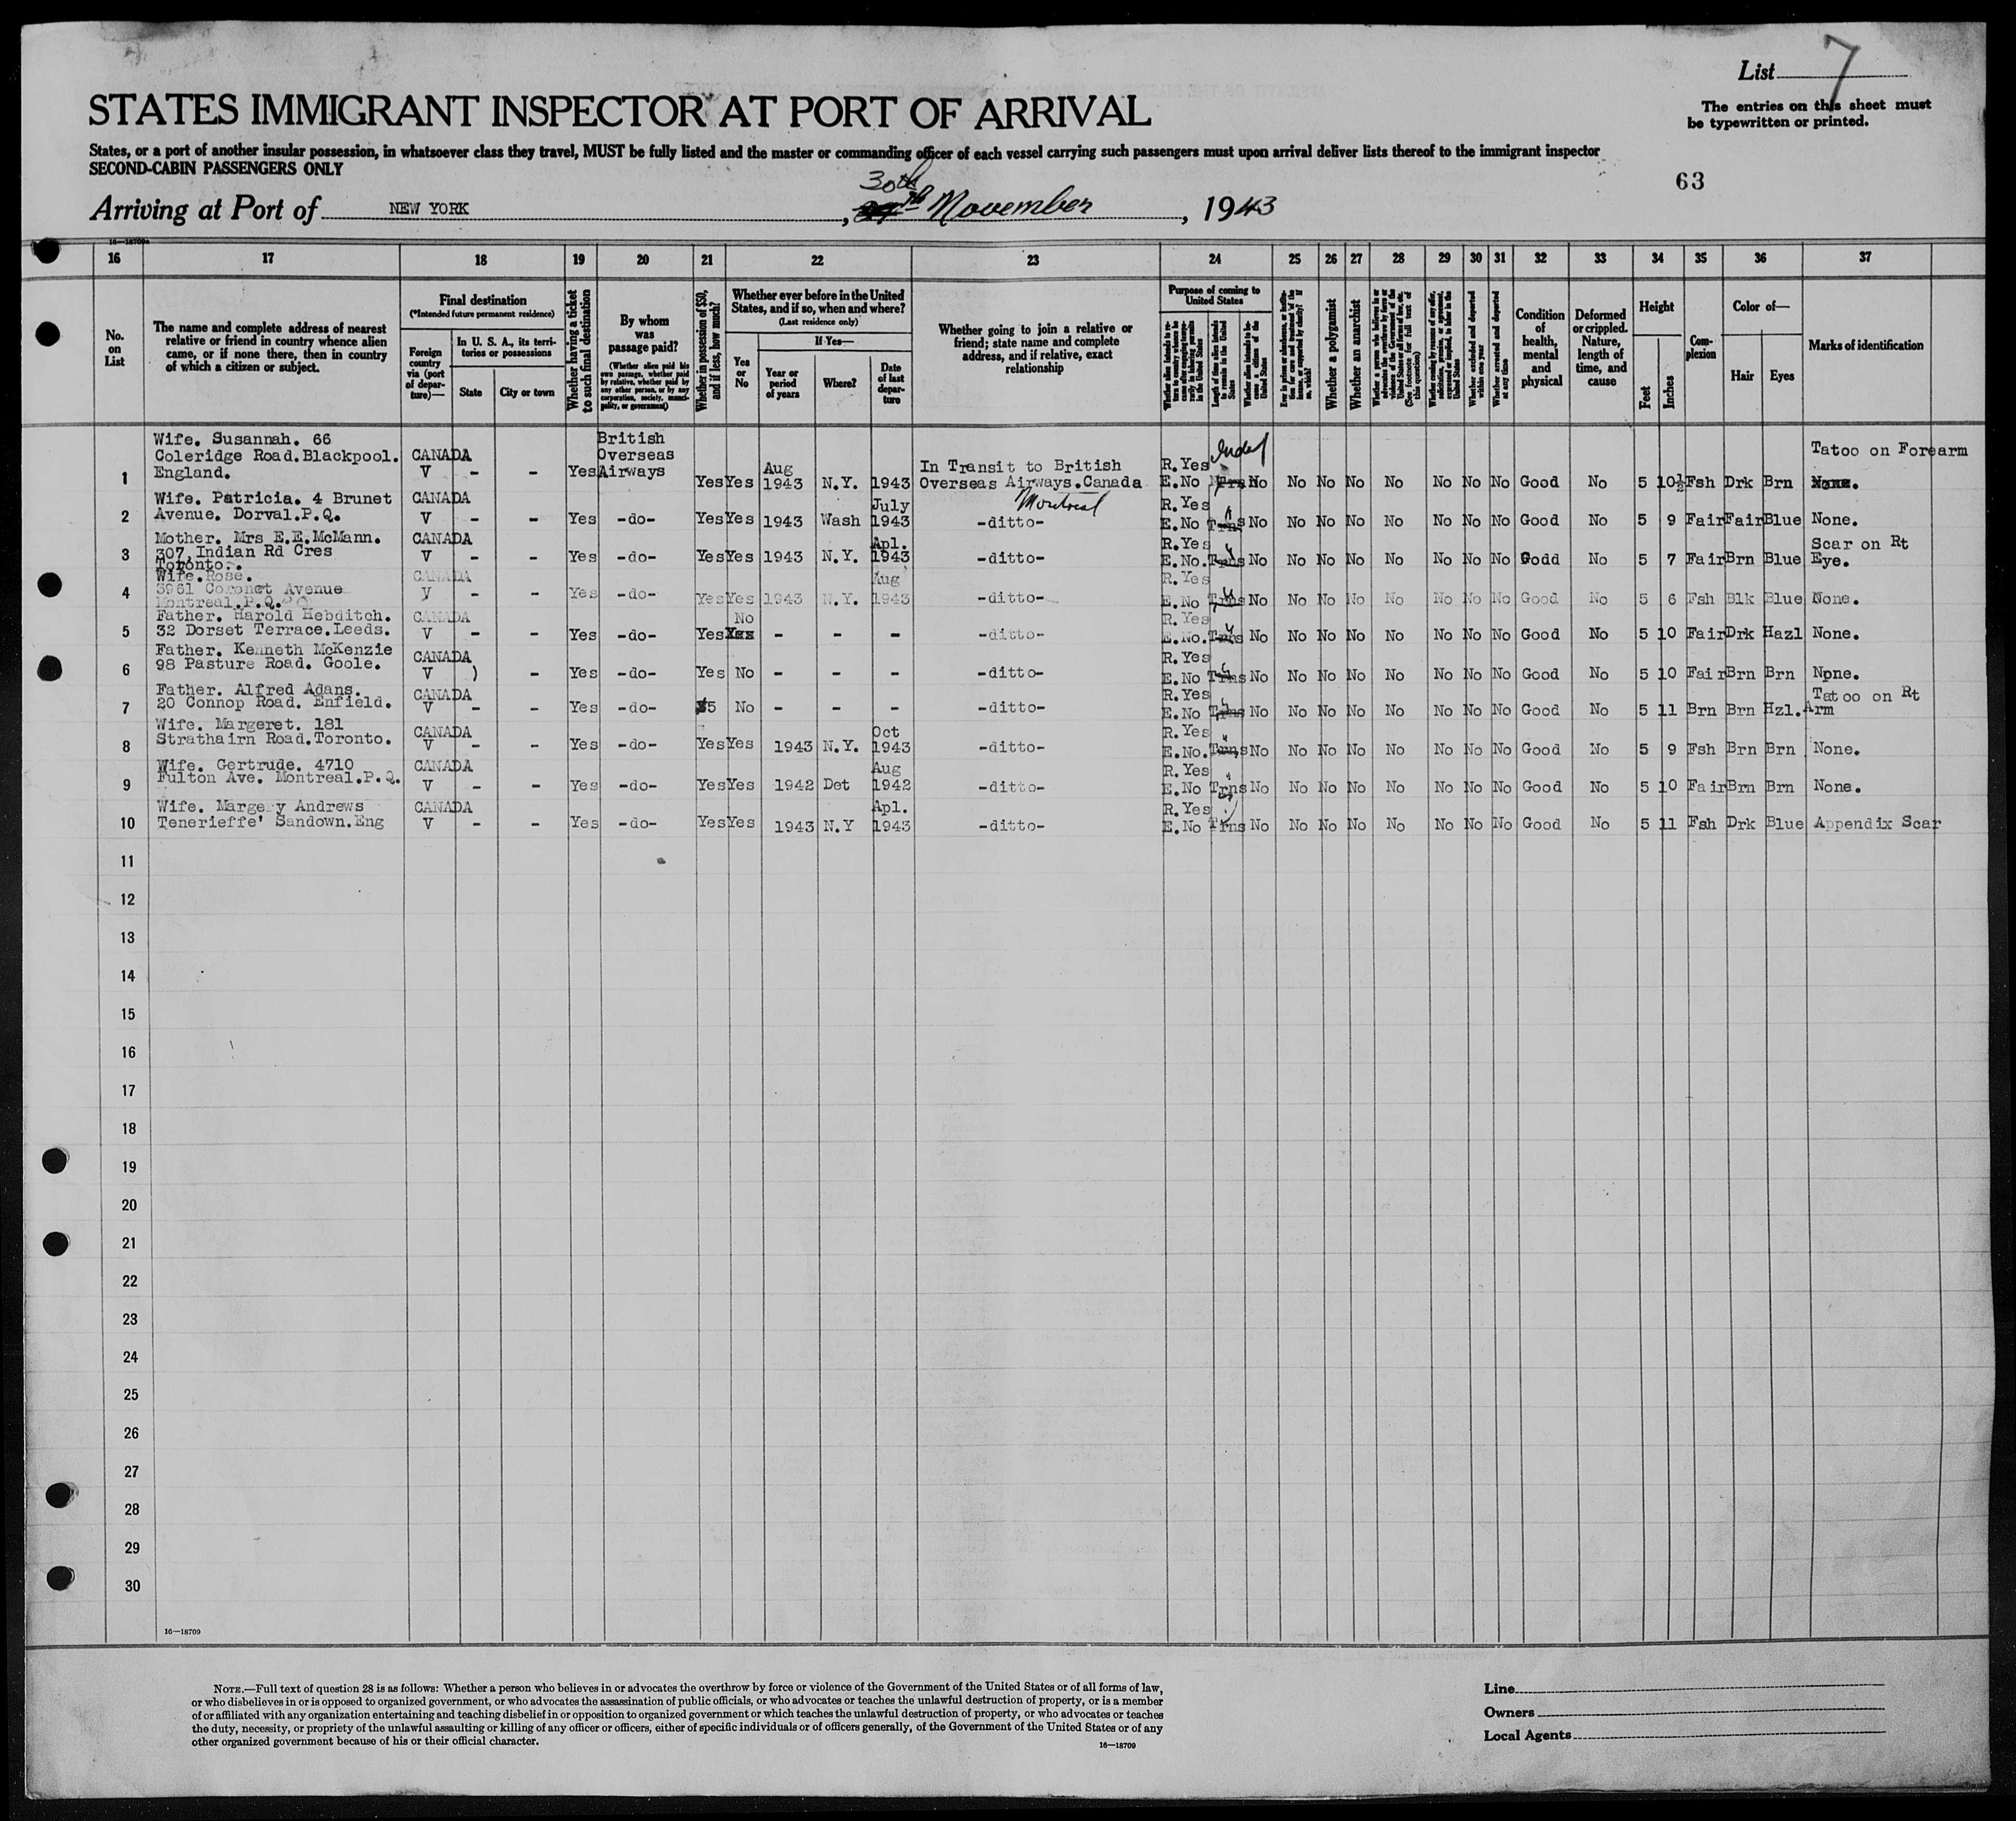 List 7
The entries on this sheet must
be typewritten or printed.
STATES IMMIGRANT INSPECTOR AT PORT OF ARRIVAL
States, or a port of another insular possession, in whatsoever class they travel, MUST be fully listed and the master or commanding officer of each vessel carrying such passengers must upon arrival deliver lists thereof to the immigrant inspector
SECOND-CABIN PASSENGERS ONLY
63
30th
Arriving at Port of NEW YORK, November, 1943
16—18709
16 17 18 19 20 21 22 23 24 25 26 27 28 29 30 31 32 33 34 35 36 37
No. on List
The name and complete address of nearest
relative or friend in country whence alien
came, or if none there, then in country
of which a citizen or subject.
Final destination
(*Intended future permanent residence)
Foreign country via (port of departure)—
In U. S. A., its territories or possessions
State
City or town
Whether having a ticket to such final destination
By whom was passage paid?
(Whether alien paid his own passage, whether paid by relative, whether paid by any other person, or by any corporation, society, municipality, or government)
Whether in possession of $50, and if less, how much?
Whether ever before in the United States, and if so, when and where?
(Last residence only)
Yes or No
If Yes—
Year or period of years
Where?
Date of last departure
Whether going to join a relative or
friend; state name and complete
address, and if relative, exact
relationship
Purpose of coming to United States
Whether alien intends to return to country whence he came after engaging temporarily in laboring pursuits in the United States
Length of time alien intends to remain in the United States
Whether alien intends to become a citizen of the United States
Whether a polygamist
Whether an anarchist
Whether arrested and deported at any time
Condition of health, mental and physical
Deformed or crippled. Nature, length of time, and cause
Height
Feet
Inches
Complexion
Color of—
Hair
Eyes
Marks of identification
Wife. Susannah. 66 CANADA British Tatoo on Forearm
Coleridge Road.Blackpool. Overseas
1 England. V - - Yes Airways Yes Yes Aug 1943 N.Y. 1943 In Transit to British Overseas Airways.Canada Montreal R.Yes E.No No No No No No No No No Good No 5 10½ Fsh Drk Brn None.
Wife. Patricia. 4 Brunet CANADA July R.Yes
2 Avenue. Dorval.P.Q. V - - Yes -do- Yes Yes 1943 Wash 1943 -ditto- E.No Trns No No No No No No No No Good No 5 9 Fair Fair Blue None.
Mother. Mrs E.E.McMann. CANADA Apl. R.Yes Scar on Rt
3 307,Indian Rd Cres V - - Yes -do- Yes Yes 1943 N.Y. 1943 -ditto- E.No. Trns No No No No No No No No Godd No 5 7 Fair Brn Blue Eye.
Toronto.
Wife.Rose. CANADA Aug R.Yes
4 3961 Coronet Avenue V - - Yes -do- Yes Yes 1943 N.Y. 1943 -ditto- E.No Trns No No No No No No No No Good No 5 6 Fsh Blk Blue None.
Montreal.P.Q.
Father. Harold Hebditch. CANADA No R.Yes
5 32 Dorset Terrace.Leeds. V - - Yes -do- Yes Yes - - - -ditto- E.No. Trns No No No No No No No No Good No 5 10 Fair Drk Hazl None.
Father. Kenneth McKenzie CANADA R.Yes
6 98 Pasture Road. Goole. V ) - Yes -do- Yes No - - - -ditto- E.No Trns No No No No No No No No Good No 5 10 Fair Brn Brn None.
Father. Alfred Adans. CANADA R.Yes Tatoo on Rt
7 20 Connop Road. Enfield. V - - Yes -do- No - - - -ditto- E.No Trns No No No No No No No No Good No 5 11 Brn Brn Hzl. Arm
Wife. Margeret. 181 CANADA Oct R.Yes
8 Strathairn Road.Toronto. V - - Yes -do- Yes Yes 1943 N.Y. 1943 -ditto- E.No. Trns No No No No No No No No Good No 5 9 Fsh Brn Brn None.
Wife. Gertrude. 4710 CANADA Aug R.Yes
9 Fulton Ave. Montreal.P.Q. V - - Yes -do- Yes Yes 1942 Det 1942 -ditto- E.No Trns No No No No No No No No Good No 5 10 Fair Brn Brn None.
Wife. Margery Andrews CANADA Apl. R.Yes
10 Tenerieffe' Sandown.Eng V - - Yes -do- Yes Yes 1943 N.Y 1943 -ditto- E.No Trns No No No No No No No No Good No 5 11 Fsh Drk Blue Appendix Scar
11
12
13
14
15
16
17
18
19
20
21
22
23
24
25
26
27
28
29
30
16—18709
NOTE.—Full text of question 28 is as follows: Whether a person who believes in or advocates the overthrow by force or violence of the Government of the United States or of all forms of law,
or who disbelieves in or is opposed to organized government, or who advocates the assassination of public officials, or who advocates or teaches the unlawful destruction of property, or is a member
of or affiliated with any organization entertaining and teaching disbelief in or opposition to organized government or which teaches the unlawful destruction of property, or who advocates or teaches
the duty, necessity, or propriety of the unlawful assaulting or killing of any officer or officers, either of specific individuals or of officers generally, of the Government of the United States or of any
other organized government because of his or their official character.
16—18709
Line
Owners
Local Agents